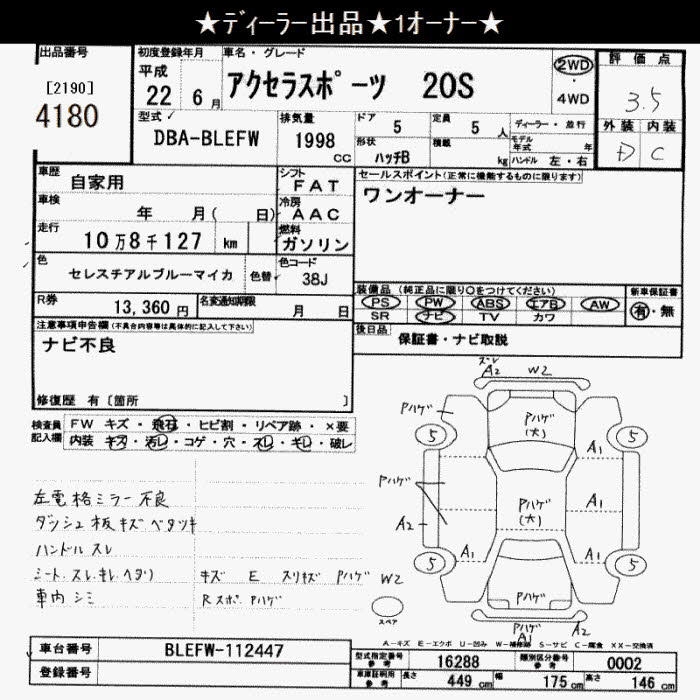 ★ディーラー出品★1オーナー★
出品番号
[2190]
4180
初度登録年月
平成
22 年 6 月
車名・グレード
アクセラスポーツ 20S
2WD
・
4WD
評価点
3.5
外装 内装
D C
型式
DBA-BLEFW
排気量
1998
CC
ドア
5
定員
5 人
形状
ハッチB
積載
kg
ディーラー・並行
モデル年式 年
ハンドル 左・右
車歴
自家用
車検
年 月( 日)
走行
10万8千127 km
色
セレスチアルブルーマイカ
色替
R券
13,360 円
名変通知期限
月 日
シフト
FAT
冷房
AAC
燃料
ガソリン
色コード
38J
セールスポイント(正常に機能するものに限ります)
ワンオーナー
装備品 (純正品に限り○をつけてください)
PS PW ABS エアB AW
SR ナビ TV カワ
新車保証書
有・無
後日品
保証書・ナビ取説
注意事項申告欄(不具合内容等は具体的に記入して下さい)
ナビ不良
修復歴 有〔箇所 〕
検査員記入欄
FW キズ・飛石・ヒビ割・リペア跡・×要
内装 キズ・汚レ・コゲ・穴・スレ・キレ・破レ
左電格ミラー不良
ダッシュ板キズベタツキ
ハンドルスレ
シート.スレ.キレ.ヘタリ
車内シミ
キズ E スリキズ Pハゲ W2
Rスポ Pハゲ
ズレ
A2 W2
Pハゲ
Pハゲ
(大)
5 5
A1
Pハゲ
Pハゲ
(大)
A1
A2
A1 A1
5 5
Pハゲ
Pハゲ
A1
A2
スペア
A-キズ E-エクボ U-凹み W-補修跡 S-サビ C-腐食 XX-交換済
車台番号
BLEFW-112447
登録番号
型式指定番号
参考
16288
類別区分番号
参考
0002
車庫証明用
参考
長さ
449 cm
幅
175 cm
高さ
146 cm